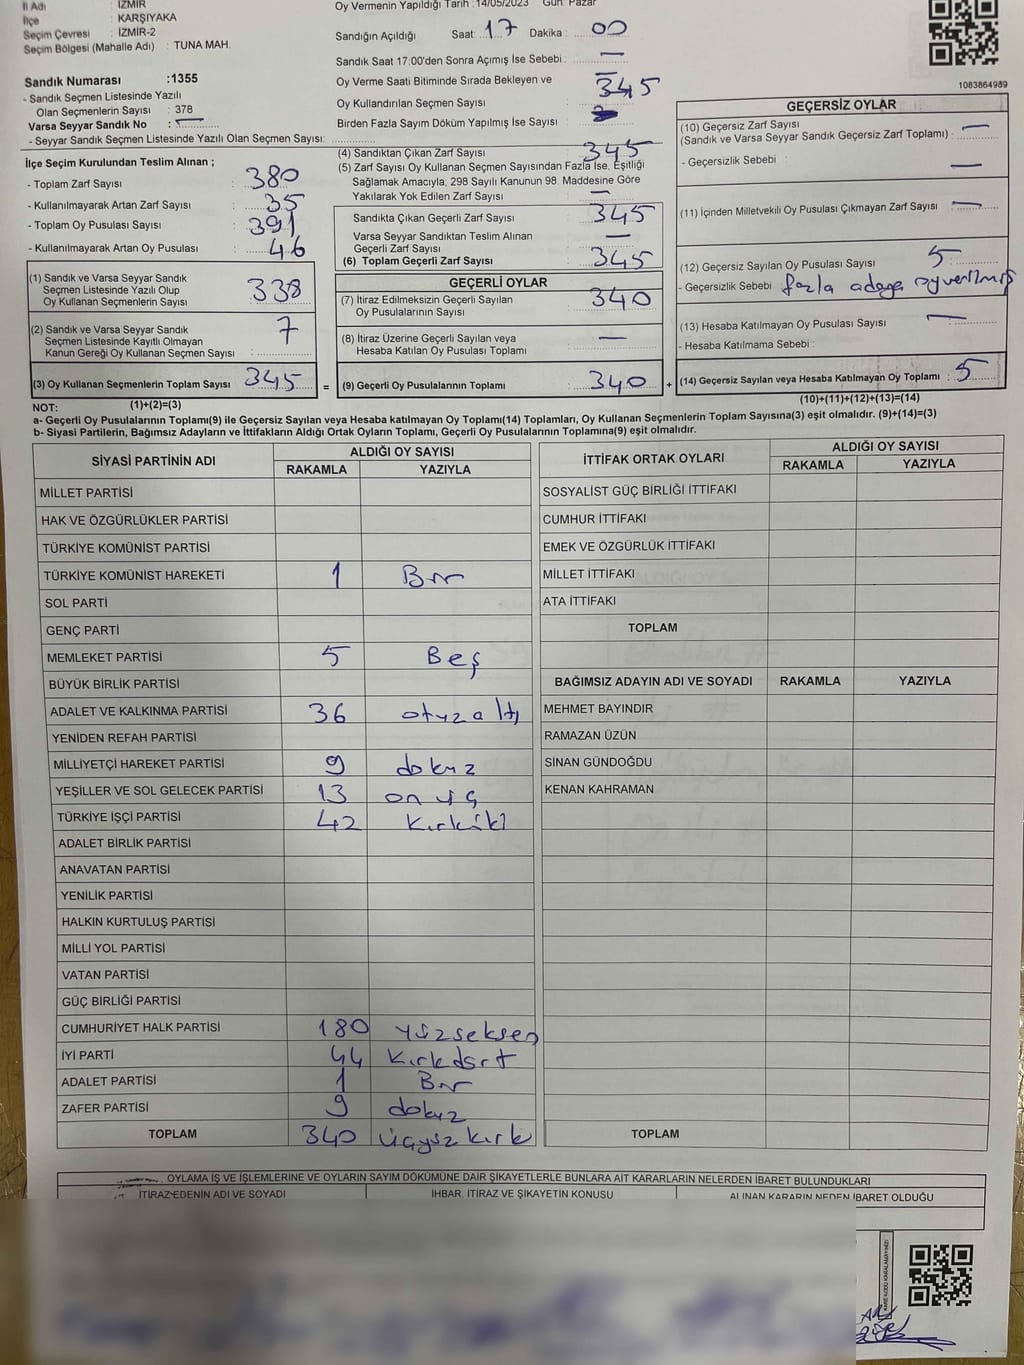 İl Adı : İZMİR
İlçe : KARŞIYAKA
Seçim Çevresi : İZMİR-2
Seçim Bölgesi (Mahalle Adı) : TUNA MAH.
Sandık Numarası :1355
- Sandık Seçmen Listesinde Yazılı
Olan Seçmenlerin Sayısı : 378
Varsa Seyyar Sandık No : —
- Seyyar Sandık Seçmen Listesinde Yazılı Olan Seçmen Sayısı:
İlçe Seçim Kurulundan Teslim Alınan ;
- Toplam Zarf Sayısı : 380
- Kullanılmayarak Artan Zarf Sayısı : 35
- Toplam Oy Pusulası Sayısı : 391
- Kullanılmayarak Artan Oy Pusulası : 46
(1) Sandık ve Varsa Seyyar Sandık
Seçmen Listesinde Yazılı Olup
Oy Kullanan Seçmenlerin Sayısı : 338
(2) Sandık ve Varsa Seyyar Sandık
Seçmen Listesinde Kayıtlı Olmayan
Kanun Gereği Oy Kullanan Seçmen Sayısı : 7
(3) Oy Kullanan Seçmenlerin Toplam Sayısı : 345
(1)+(2)=(3)
Oy Vermenin Yapıldığı Tarih :14/05/2023 Gün: Pazar
Sandığın Açıldığı Saat: 17 Dakika : 00
Sandık Saat 17:00'den Sonra Açmış İse Sebebi : —
Oy Verme Saati Bitiminde Sırada Bekleyen ve —
Oy Kullandırılan Seçmen Sayısı : 345
Birden Fazla Sayım Döküm Yapılmış İse Sayısı :
(4) Sandıktan Çıkan Zarf Sayısı : 345
(5) Zarf Sayısı Oy Kullanan Seçmen Sayısından Fazla İse, Eşitliği
Sağlamak Amacıyla, 298 Sayılı Kanunun 98. Maddesine Göre
Yakılarak Yok Edilen Zarf Sayısı : —
Sandıkta Çıkan Geçerli Zarf Sayısı : 345
Varsa Seyyar Sandıktan Teslim Alınan
Geçerli Zarf Sayısı : —
(6) Toplam Geçerli Zarf Sayısı : 345
GEÇERLİ OYLAR
(7) İtiraz Edilmeksizin Geçerli Sayılan
Oy Pusulalarının Sayısı : 340
(8) İtiraz Üzerine Geçerli Sayılan veya
Hesaba Katılan Oy Pusulası Toplamı : —
= (9) Geçerli Oy Pusulalarının Toplamı : 340 +
1083864989
GEÇERSİZ OYLAR
(10) Geçersiz Zarf Sayısı
(Sandık ve Varsa Seyyar Sandık Geçersiz Zarf Toplamı) : —
- Geçersizlik Sebebi : —
(11) İçinden Milletvekili Oy Pusulası Çıkmayan Zarf Sayısı : —
(12) Geçersiz Sayılan Oy Pusulası Sayısı : 5
- Geçersizlik Sebebi : fazla adaya oyverilmiş
(13) Hesaba Katılmayan Oy Pusulası Sayısı : —
- Hesaba Katılmama Sebebi :
(14) Geçersiz Sayılan veya Hesaba Katılmayan Oy Toplamı : 5
(10)+(11)+(12)+(13)=(14)
NOT:
a- Geçerli Oy Pusulalarının Toplamı(9) ile Geçersiz Sayılan veya Hesaba katılmayan Oy Toplamı(14) Toplamları, Oy Kullanan Seçmenlerin Toplam Sayısına(3) eşit olmalıdır. (9)+(14)=(3)
b- Siyasi Partilerin, Bağımsız Adayların ve İttifakların Aldığı Ortak Oyların Toplamı, Geçerli Oy Pusulalarının Toplamına(9) eşit olmalıdır.
SİYASİ PARTİNİN ADI ALDIĞI OY SAYISI
RAKAMLA YAZIYLA
MİLLET PARTİSİ
HAK VE ÖZGÜRLÜKLER PARTİSİ
TÜRKİYE KOMÜNİST PARTİSİ
TÜRKİYE KOMÜNİST HAREKETİ 1 Bir
SOL PARTİ
GENÇ PARTİ
MEMLEKET PARTİSİ 5 Beş
BÜYÜK BİRLİK PARTİSİ
ADALET VE KALKINMA PARTİSİ 36 otuzaltı
YENİDEN REFAH PARTİSİ
MİLLİYETÇİ HAREKET PARTİSİ 9 dokuz
YEŞİLLER VE SOL GELECEK PARTİSİ 13 on üç
TÜRKİYE İŞÇİ PARTİSİ 42 Kırkiki
ADALET BİRLİK PARTİSİ
ANAVATAN PARTİSİ
YENİLİK PARTİSİ
HALKIN KURTULUŞ PARTİSİ
MİLLİ YOL PARTİSİ
VATAN PARTİSİ
GÜÇ BİRLİĞİ PARTİSİ
CUMHURİYET HALK PARTİSİ 180 yüzseksen
İYİ PARTİ 44 Kırkdört
ADALET PARTİSİ 1 Bir
ZAFER PARTİSİ 9 dokuz
TOPLAM 340 üçyüzkırk
İTTİFAK ORTAK OYLARI ALDIĞI OY SAYISI
RAKAMLA YAZIYLA
SOSYALİST GÜÇ BİRLİĞİ İTTİFAKI
CUMHUR İTTİFAKI
EMEK VE ÖZGÜRLÜK İTTİFAKI
MİLLET İTTİFAKI
ATA İTTİFAKI
TOPLAM
BAĞIMSIZ ADAYIN ADI VE SOYADI RAKAMLA YAZIYLA
MEHMET BAYINDIR
RAMAZAN ÜZÜN
SİNAN GÜNDOĞDU
KENAN KAHRAMAN
TOPLAM
OYLAMA İŞ VE İŞLEMLERİNE VE OYLARIN SAYIM DÖKÜMÜNE DAİR ŞİKAYETLERLE BUNLARA AİT KARARLARIN NELERDEN İBARET BULUNDUKLARI
İTİRAZ EDENİN ADI VE SOYADI İHBAR, İTİRAZ VE ŞİKAYETİN KONUSU ALINAN KARARIN NEDEN İBARET OLDUĞU